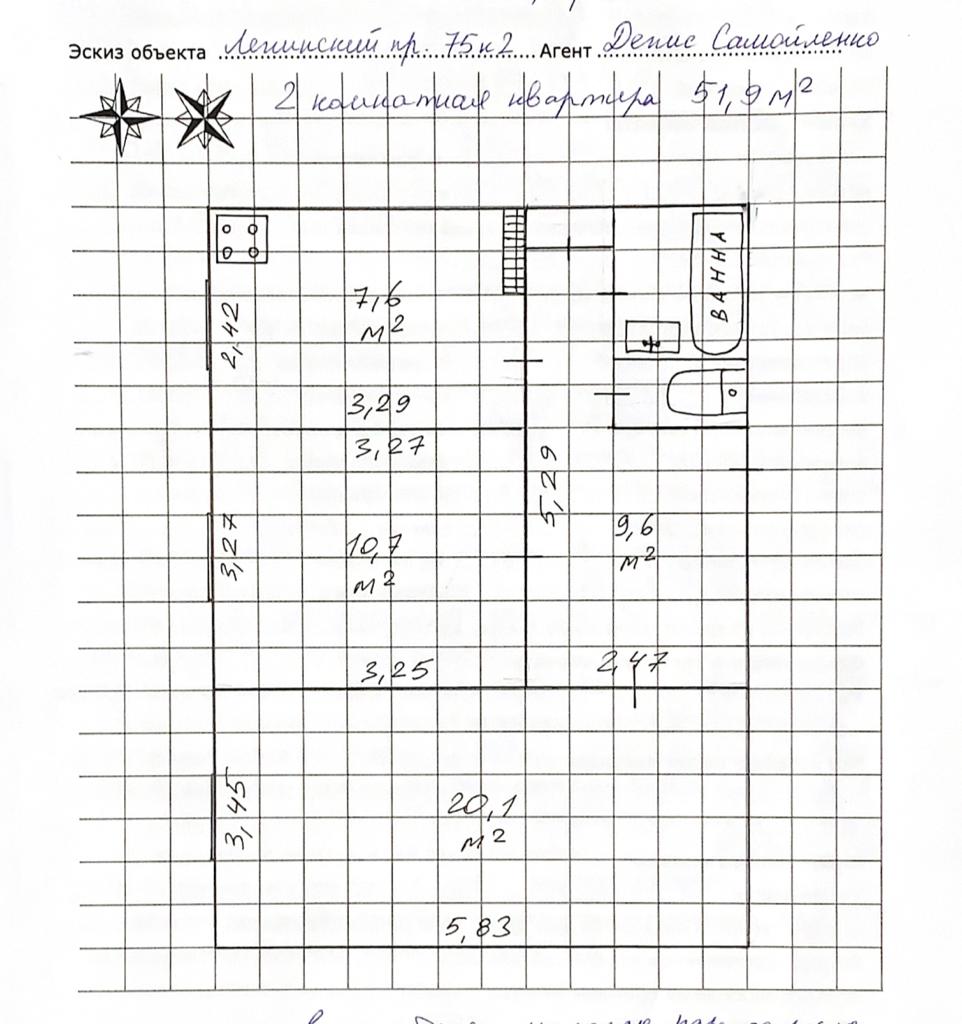 Эскиз объекта Ленинский пр. 75к2 Агент Денис Самойленко
2 комнатная квартира 51,9 м²
ВАННА
7,6
м²
2,42
3,29
3,27
5,29
3,27
10,7
м²
9,6
м²
3,25
2,47
3,45
20,1
м²
5,83